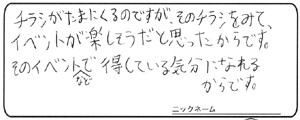 チラシがたまにくるのですが、そのチラシをみて、
イベントが楽しそうだと思ったからです。
そのイベントなどで得している気分になれる
からです。
ニックネーム